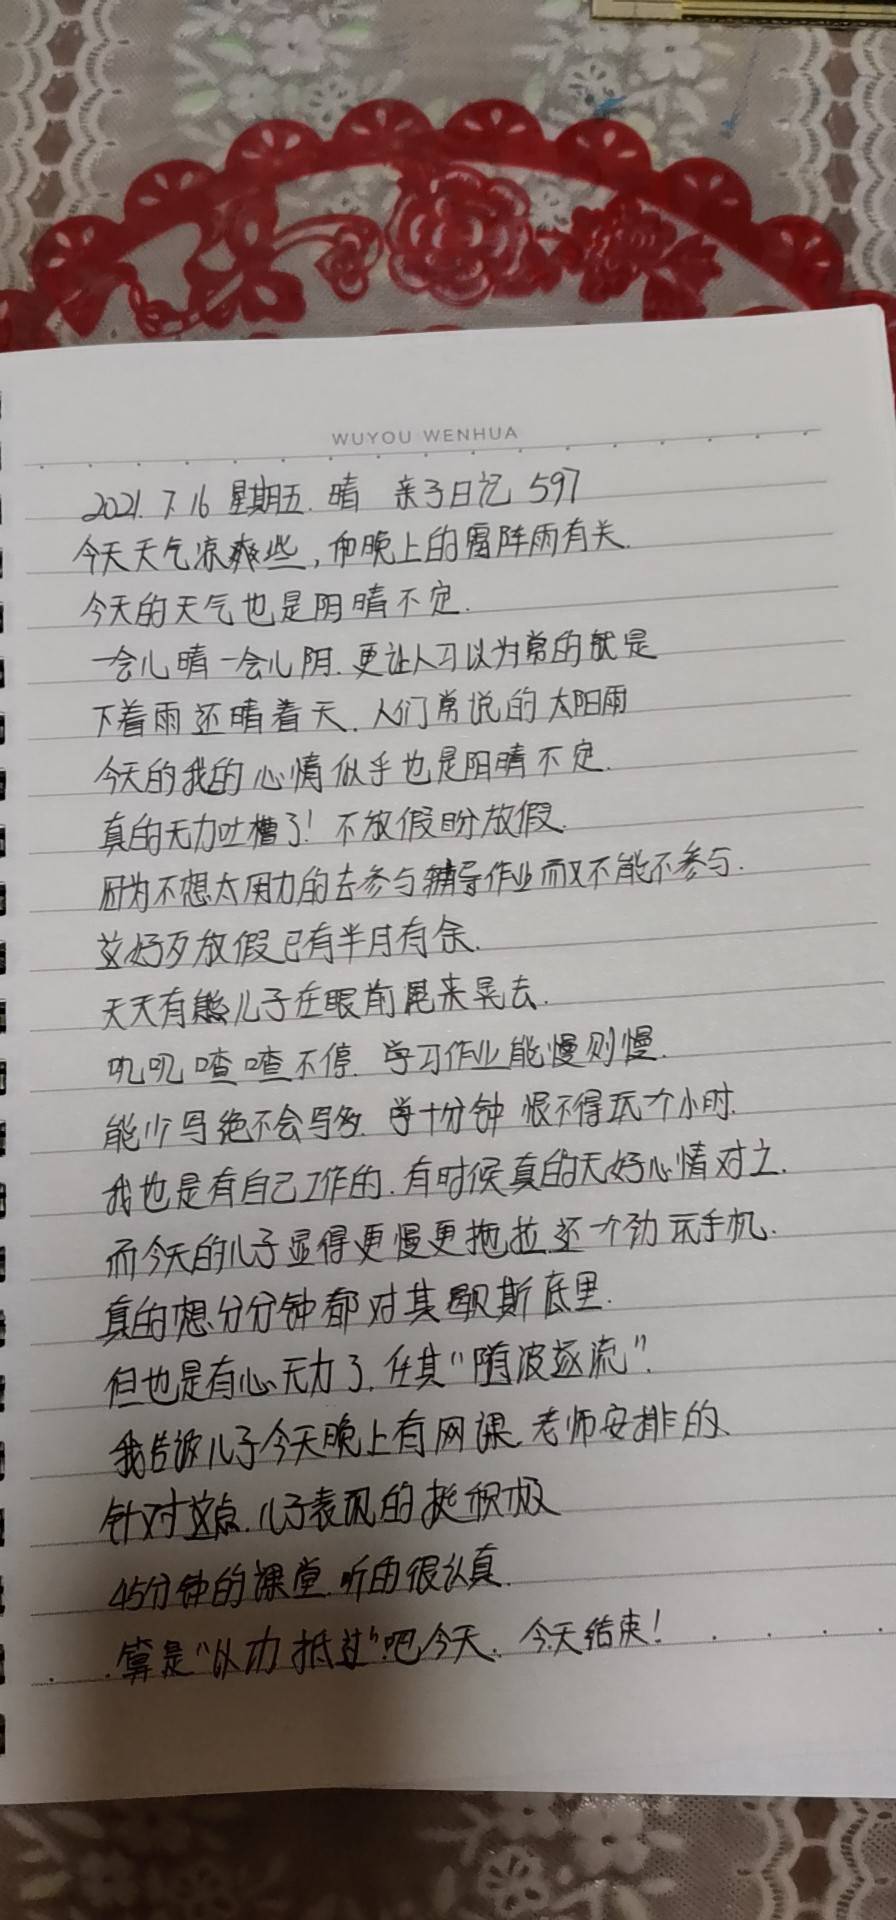 WUYOU WENHUA
2021.7.16 星期五.晴 亲子日记 597
今天天气凉爽些,和晚上的雷阵雨有关.
今天的天气也是阴晴不定.
一会儿晴一会儿阴.更让人习以为常的就是
下着雨还晴着天.人们常说的太阳雨
今天的我的心情似乎也是阴晴不定.
真的无力吐槽了!不放假盼放假.
因为不想太用力的去参与辅导作业而又不能不参与.
这好歹放假已有半月有余.
天天有熊儿子在眼前晃来晃去.
叽叽喳喳不停.学习作业能慢则慢.
能少写绝不会写多.学十分钟 恨不得玩个小时.
我也是有自己工作的.有时候真的无好心情对之.
而今天的儿子显得更慢更拖拉还一个劲玩手机.
真的想分分钟都对其歇斯底里.
但也是有心无力了.任其“随波逐流”.
我告诉儿子今天晚上有网课.老师安排的.
针对这点.儿子表现的挺积极
45分钟的课堂.听的很认真.
算是“以功抵过”吧今天.今天结束!